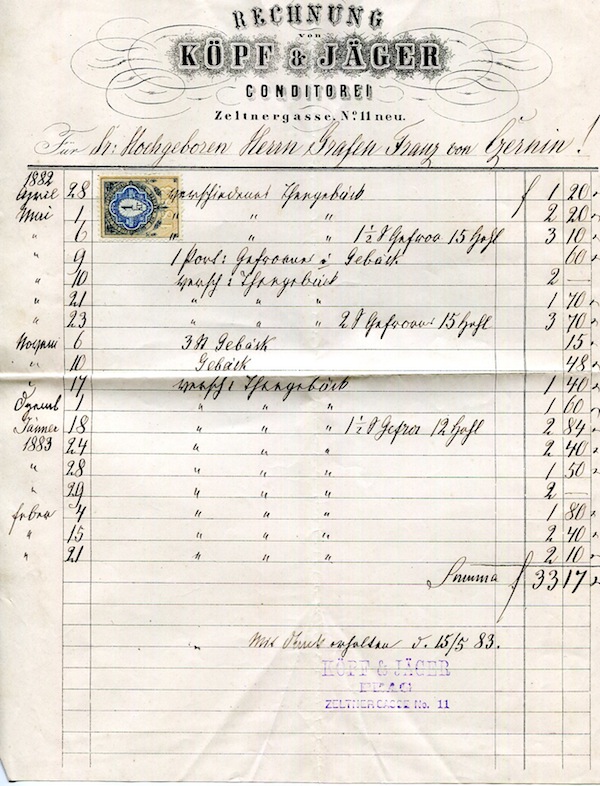 RECHNUNG
von
KÖPF & JÄGER
CONDITOREI
Zeltnergasse. No. 11 neu.
Für Sr: Hochgeboren Herrn Grafen Franz von Czernin!
1882
April 28 verschiedenes Theegebäck f 1 20 "
Mai 1 " " " 2 20 "
" 6 " " " 1½ Gefror 15 Hohl 3 10 "
" 9 1 Port: Gefrorne Gebäck 60 "
" 10 versch: Theegebäck 2 —
" 21 " " " 1 70 "
" 23 " " " 2 Gefrorne 15 Hohl 3 70 "
6 3 St Gebäck 15 "
" 10 Gebäck 48 "
" 17 versch: Theegebäck 1 40 "
Dzemb 1 " " " 1 60 "
Jänner 18 " " " 1½ Gefror 12 Hohl 2 84 "
1883 24 " " " 2 40 "
" 28 " " " 1 50 "
" 29 " " " 2 —
Feber 4 " " " 1 80 "
" 15 " " " 2 40 "
" 21 " " " 2 10 "
Summa f 33 17 "
Mit Dank erhalten d. 15/5 83.
KÖPF & JÄGER
PRAG
ZELTNERGASSE No. 11